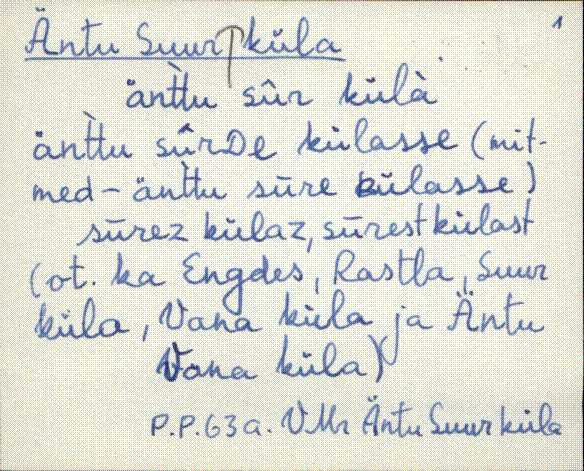 1
Äntu Suur küla
änt̀tu sûr külà
änt̀tu sûrDe külasse (mit-
med – änt̀tu sūre külasse)
sūrez külaz, sūrest külast
(ot. ka Engdes, Rastla, Suur
küla, Vana küla ja Äntu
Vana küla)
P.P. 63 a. VMr Äntu Suur küla